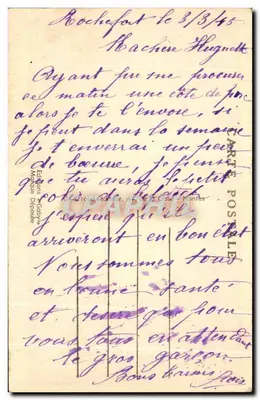 Rochefort le 3/3/45
Ma chère Huguette
Ayant pu me procurer
ce matin une côte de porc
alors je te l'envoie, si
je peut dans la semaine
je t enverrai un peu
de beurre, je pense
que tu auras le petit
colis de
j'espère qu'ils
arriveront en bon état
Nous sommes tous
en bonne santé
et que pour
vous tous en attendant
le gros garçon
Bons baisers
CARTE POSTALE
Editions "Gaby"
Marque Déposée